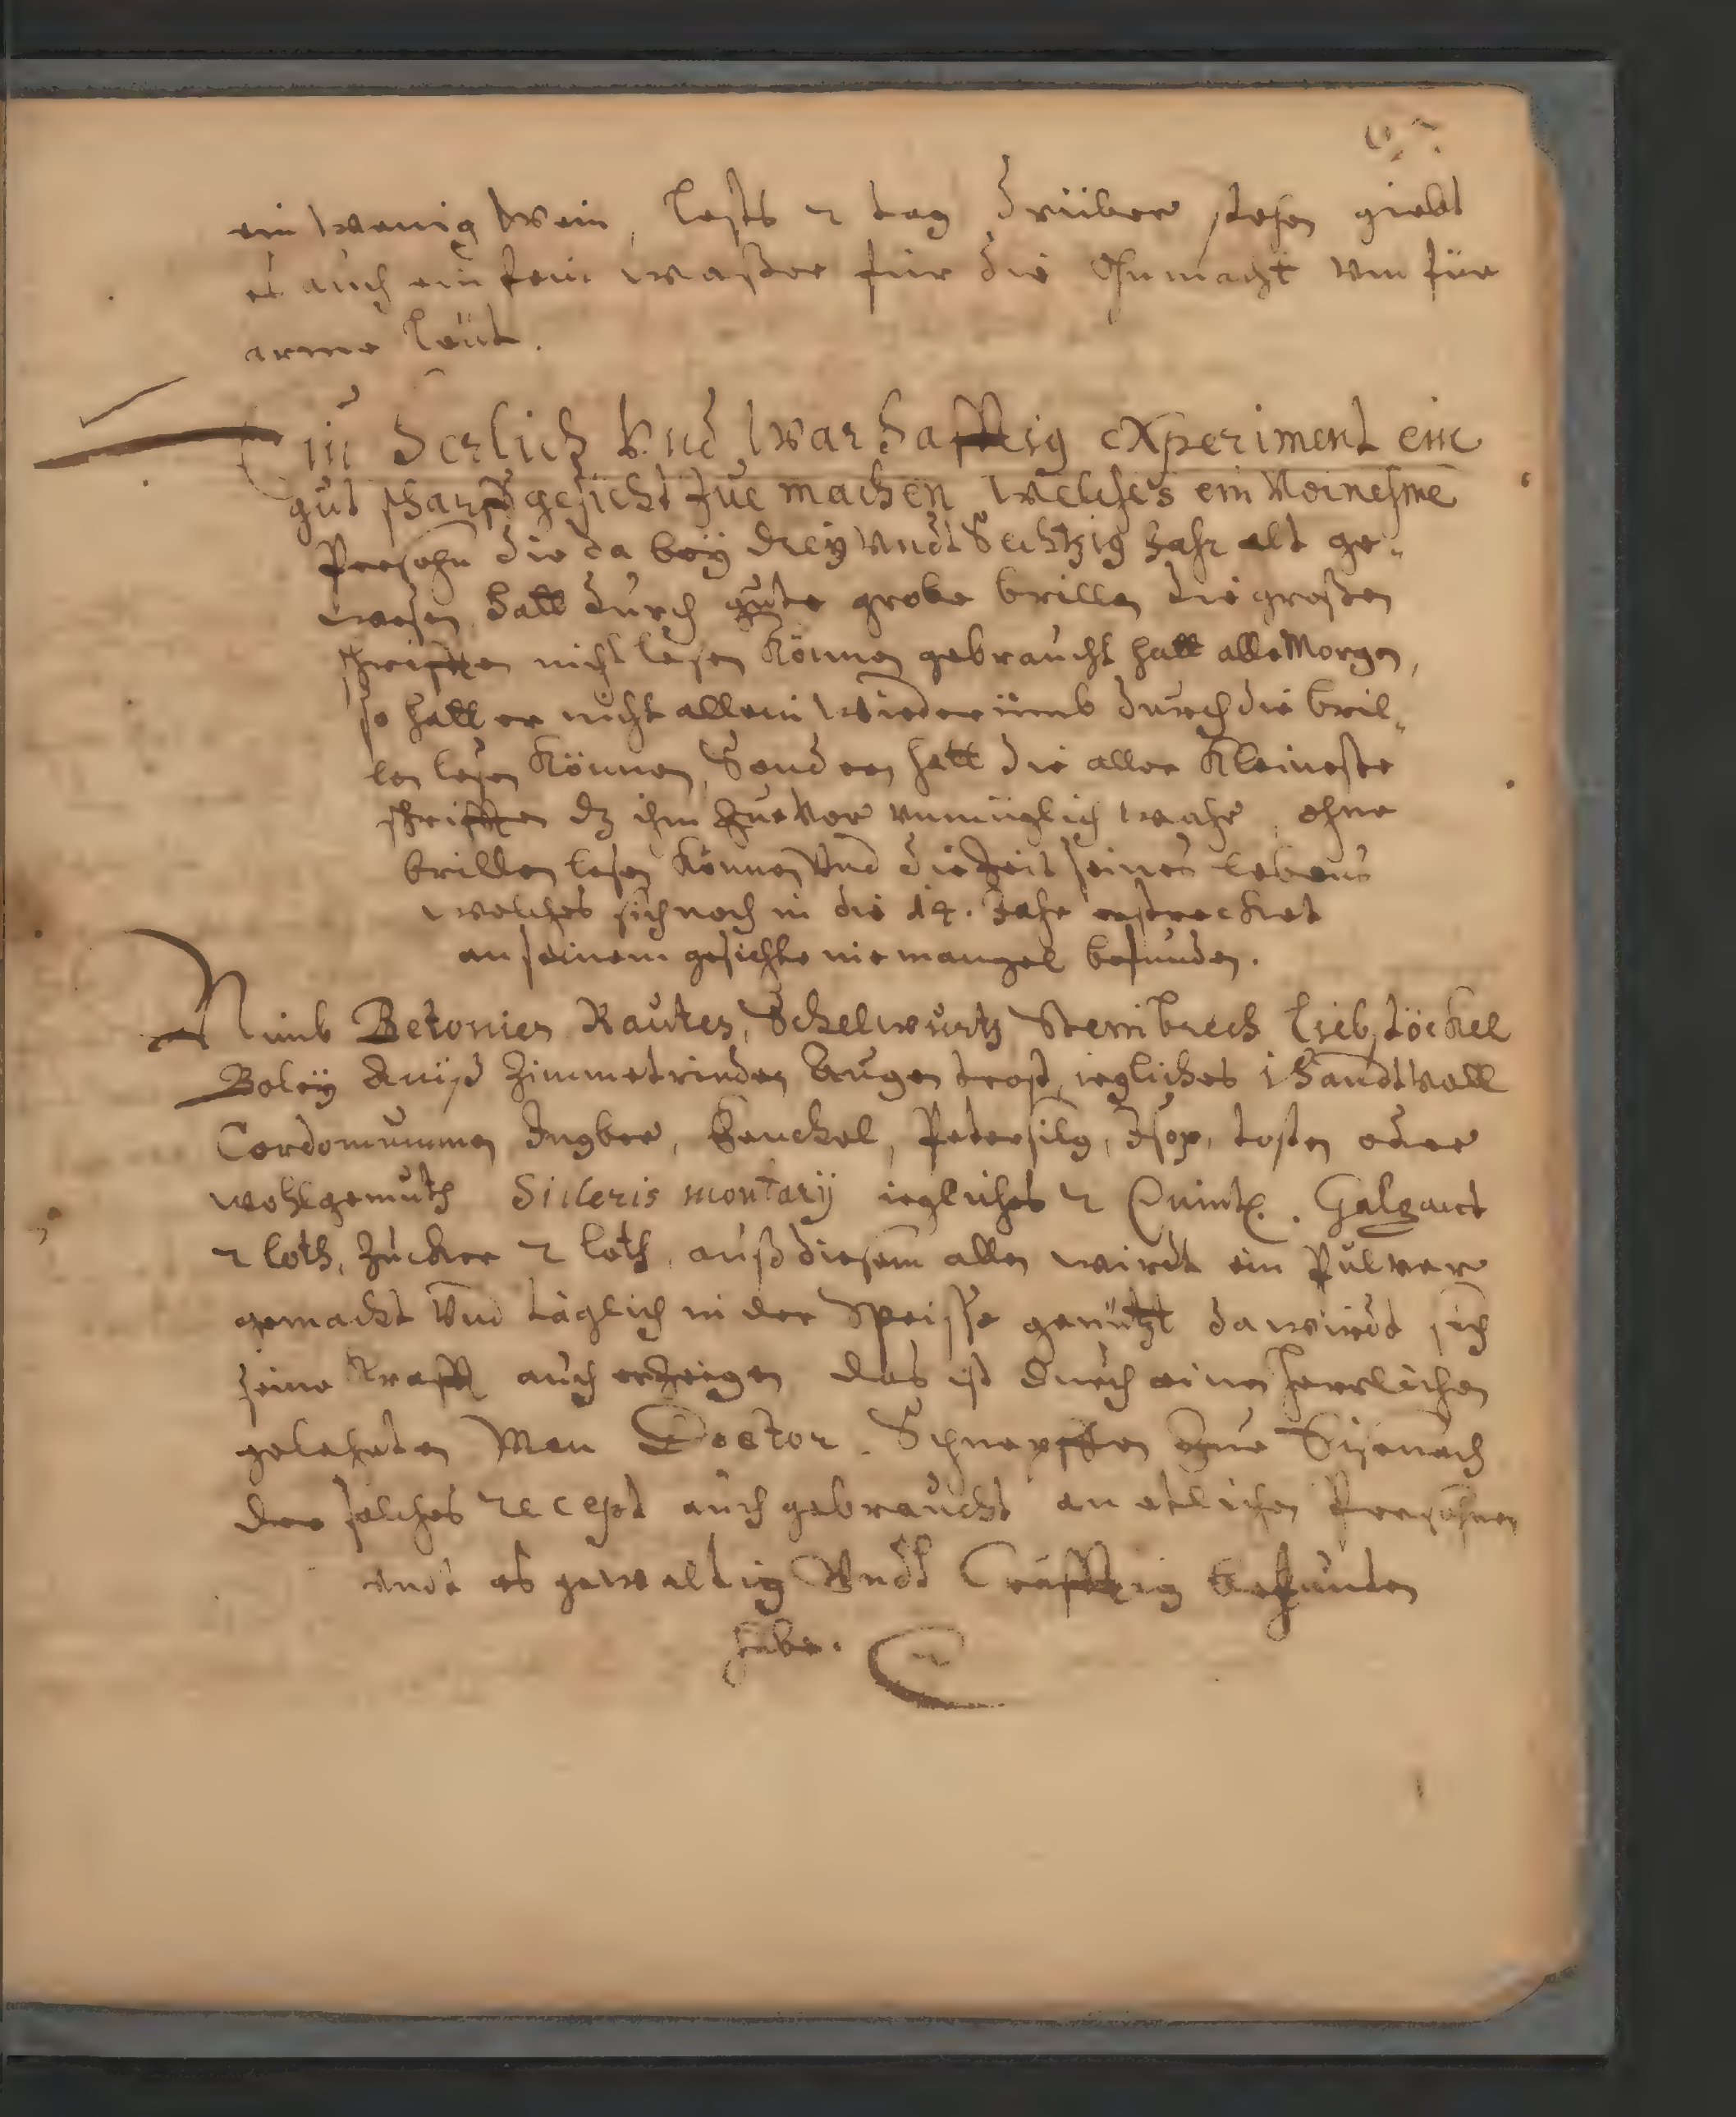 ein wenig Wein, lasts 2 tag drüber stehen giebt
es auch ein fein waßer für die Ohnmacht vnn für
arme leüt.
Ein Herlich Vnd Warhafftig experiment eine
gut scharpf gesicht zue machen, welches ein Vornehme
Persohn die da beÿ dreÿ Vndt Sechtzig Jahr alt ge-
wesen, hatt durch gute grobe brillen die großen
schrifften nicht lesen können gebraucht hatt alle Morgen,
so hatt er nicht allein wiederümb durch die bril-
len lesen können, Sondern hatt die aller kleineste
schrifften dz ihm zue Vor vnmüglich wahr, ohne
brillen lesen können Vnd die Zeit seines lebens
welches sich noch in die 14. Jahr erstrecket
an seinem gesichte nie mangel befunden.
Nimb Betonien Rauten, Schelwurtz Steinbrech liebstöckel
Poleÿ Aniß Zimmetrinden Augentrost, iegliches 1 handt Voll
Cordomummen Ingber, Fenckel, Petersilg, Isop, tosten oder
wohlgemuth Silleris montarÿ iegliches 2 Quintl. Galgant
2 loth, Zucker 2 loth, auß diesem allen wirdt ein Pulver
gemacht Vnd täglich in der Speisse genützt da wirdt sich
seine Krafft auch erzeigen das ist durch einen Herrlichen
gelehrten Man Doctor Schnepffen zue Eisenach
der solches recept auch gebraucht an etlichen Persohnen
vndt es gewaltig Vndt Cräfftig befunden
habe.